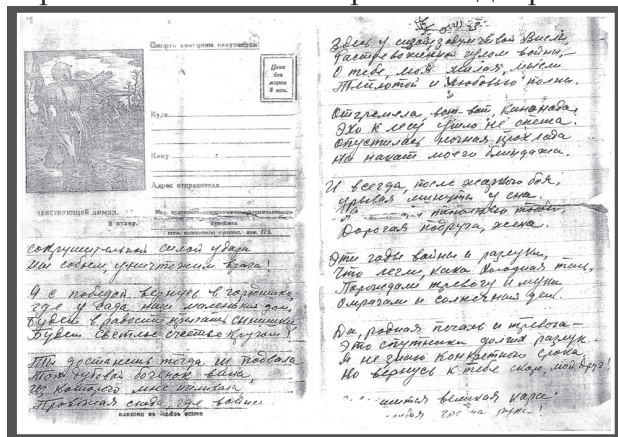 Смерть немецким оккупантам!
Цена без марки 5 коп.
Куда
Кому
Адрес отправителя
ДЕЙСТВУЮЩЕЙ АРМИИ.
В атаку.
сокрушительной силой удара
Мы собьём, уничтожим врага!
Я с победой вернусь в городишко,
где у сада наш маленький дом,
Будем в радости сынишки
Будет светлое счастье кругом!
Ты достанешь тогда из подвала
Тот дубовый бочёнок вина,
Из которого мне наливала
Провожая сюда, где война
Здесь у сизой задумчивой Вислы
Растревоженной гулом войны,
О тебе, моя милая, мысли
Теплотой и любовью полны.
Отгремела, вот вот, канонада,
Эхо к лесу ушло не спеша.
Опустилась ночная прохлада
На накат моего блиндажа.
И всегда, после жаркого боя,
Урывая минуты у сна.
Дорогая подруга, жена.
Эти годы войны и разлуки,
Что легли, как холодная тень,
Порождали тревогу и муки
Омрачали и солнечный день.
Да, родная печаль и тревога —
Это спутники долгих разлук.
Я не знаю конкретного срока
Но вернусь к тебе скоро, мой друг!
великая кара